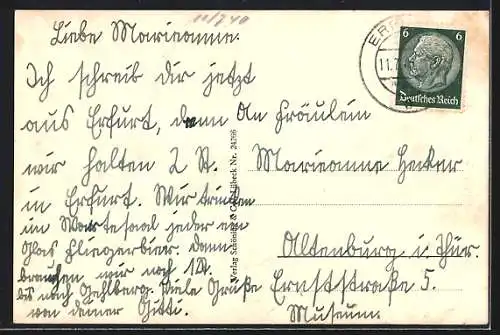 11/7 40
Liebe Marieanne.
Ich schreib dir jetzt
aus Erfurt, denn
wir halten 2 St.
in Erfurt. Wir trinken
im Wartesaal jeder ein
Glas Fliegerbier. Dann
brauchen wir noch 1 St.
bis nach Gehlberg. Viele Grüße
von deiner Gitti.
An Fräulein
Marieanne Hecker
Altenburg i Thür.
Ernststraße 5.
Museum.
Verlag Schöning & Co., Lübeck Nr. 24766
ERF
11.7
6 6
Deutsches Reich